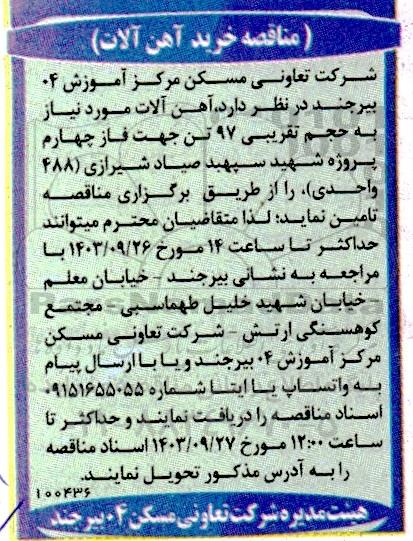 ( مناقصه خرید آهن آلات)
شرکت تعاونی مسکن مرکز آموزش ۰۴
بیرجند در نظر دارد،آهن آلات مورد نیاز
به حجم تقریبی ۹۷ تن جهت فاز چهارم
پروژه شهید سپهبد صیاد شیرازی (۴۸۸
واحدی)، را از طریق برگزاری مناقصه
تامین نماید؛ لذا متقاضیان محترم میتوانند
حداکثر تا ساعت ۱۴ مورخ ۱۴۰۳/۰۹/۲۶ با
مراجعه به نشانی بیرجند - خیابان معلم
- خیابان شهید خلیل طهماسبی - مجتمع
کوهسنگی ارتش - شرکت تعاونی مسکن
مرکز آموزش ۰۴ بیرجند و یا با ارسال پیام
به واتساپ یا ایتا شماره ۰۹۱۵۱۶۵۵۰۵۵
اسناد مناقصه را دریافت نمایند و حداکثر تا
ساعت ۱۲:۰۰ مورخ ۱۴۰۳/۰۹/۲۷ اسناد مناقصه
را به آدرس مذکور تحویل نمایند.
۱۰۰۴۳۶
هیئت مدیره شرکت تعاونی مسکن ۰۴ بیرجند